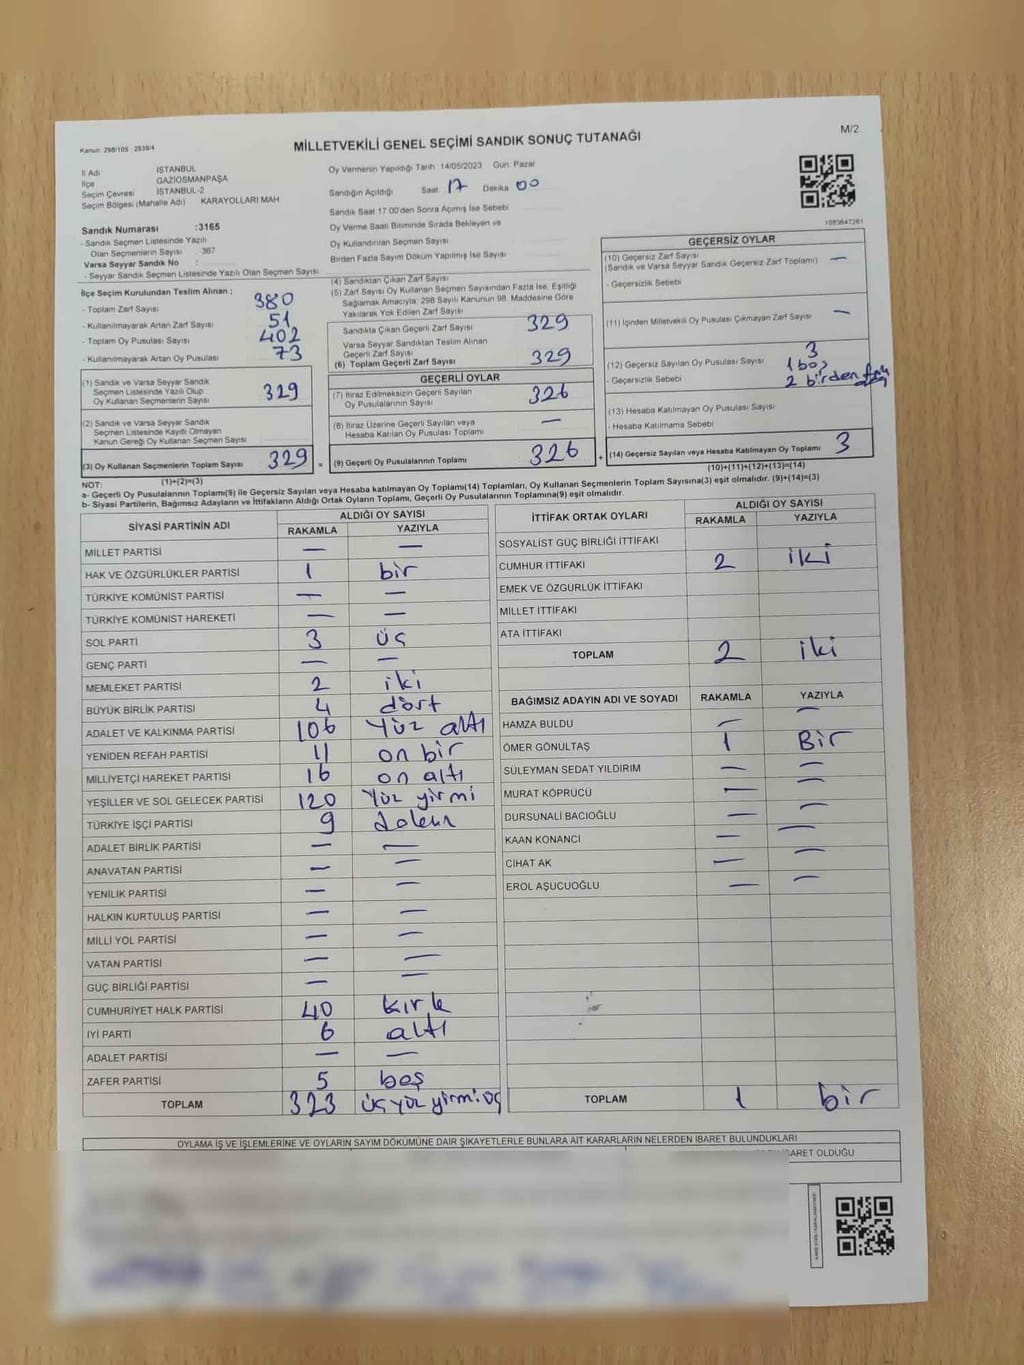 Kanun: 298/105 - 2839/4
MİLLETVEKİLİ GENEL SEÇİMİ SANDIK SONUÇ TUTANAĞI
M/2
İl Adı İSTANBUL
İlçe GAZİOSMANPAŞA
Seçim Çevresi İSTANBUL-2
Seçim Bölgesi (Mahalle Adı) KARAYOLLARI MAH
Sandık Numarası :3165
- Sandık Seçmen Listesinde Yazılı
Olan Seçmenlerin Sayısı 367
Varsa Seyyar Sandık No :
- Seyyar Sandık Seçmen Listesinde Yazılı Olan Seçmen Sayısı
Oy Vermenin Yapıldığı Tarih :14/05/2023 Gün: Pazar
Sandığın Açıldığı Saat 17 Dakika 00
Sandık Saat 17.00'den Sonra Açımış İse Sebebi
Oy Verme Saati Bitiminde Sırada Bekleyen ve
Oy Kullandırılan Seçmen Sayısı
Birden Fazla Sayım Döküm Yapılmış İse Sayısı
1083647281
İlçe Seçim Kurulundan Teslim Alınan ;
- Toplam Zarf Sayısı 380
- Kullanılmayarak Artan Zarf Sayısı 51
- Toplam Oy Pusulası Sayısı 402
- Kullanılmayarak Artan Oy Pusulası 73
(1) Sandık ve Varsa Seyyar Sandık
Seçmen Listesinde Yazılı Olup
Oy Kullanan Seçmenlerin Sayısı 329
(2) Sandık ve Varsa Seyyar Sandık
Seçmen Listesinde Kayıtlı Olmayan
Kanun Gereği Oy Kullanan Seçmen Sayısı
(3) Oy Kullanan Seçmenlerin Toplam Sayısı 329 =
(1)+(2)=(3)
(4) Sandıktan Çıkan Zarf Sayısı
(5) Zarf Sayısı Oy Kullanan Seçmen Sayısından Fazla İse, Eşitliği
Sağlamak Amacıyla; 298 Sayılı Kanunun 98. Maddesine Göre
Yakılarak Yok Edilen Zarf Sayısı
Sandıkta Çıkan Geçerli Zarf Sayısı 329
Varsa Seyyar Sandıktan Teslim Alınan
Geçerli Zarf Sayısı
(6) Toplam Geçerli Zarf Sayısı 329
GEÇERLİ OYLAR
(7) İtiraz Edilmeksizin Geçerli Sayılan
Oy Pusulalarının Sayısı 326
(8) İtiraz Üzerine Geçerli Sayılan veya
Hesaba Katılan Oy Pusulası Toplamı —
(9) Geçerli Oy Pusulalarının Toplamı 326 +
GEÇERSİZ OYLAR
(10) Geçersiz Zarf Sayısı —
(Sandık ve Varsa Seyyar Sandık Geçersiz Zarf Toplamı)
- Geçersizlik Sebebi
(11) İçinden Milletvekili Oy Pusulası Çıkmayan Zarf Sayısı —
(12) Geçersiz Sayılan Oy Pusulası Sayısı 3
- Geçersizlik Sebebi 1 boş
2 birden
(13) Hesaba Katılmayan Oy Pusulası Sayısı
- Hesaba Katılmama Sebebi
(14) Geçersiz Sayılan veya Hesaba Katılmayan Oy Toplamı 3
(10)+(11)+(12)+(13)=(14)
NOT:
a- Geçerli Oy Pusulalarının Toplamı(9) ile Geçersiz Sayılan veya Hesaba katılmayan Oy Toplamı(14) Toplamları, Oy Kullanan Seçmenlerin Toplam Sayısına(3) eşit olmalıdır. (9)+(14)=(3)
b- Siyasi Partilerin, Bağımsız Adayların ve İttifakların Aldığı Ortak Oyların Toplamı, Geçerli Oy Pusulalarının Toplamına(9) eşit olmalıdır.
SİYASİ PARTİNİN ADI ALDIĞI OY SAYISI
RAKAMLA YAZIYLA
MİLLET PARTİSİ — —
HAK VE ÖZGÜRLÜKLER PARTİSİ 1 bir
TÜRKİYE KOMÜNİST PARTİSİ — —
TÜRKİYE KOMÜNİST HAREKETİ — —
SOL PARTİ 3 üç
GENÇ PARTİ — —
MEMLEKET PARTİSİ 2 iki
BÜYÜK BİRLİK PARTİSİ 4 dört
ADALET VE KALKINMA PARTİSİ 106 Yüz altı
YENİDEN REFAH PARTİSİ 11 on bir
MİLLİYETÇİ HAREKET PARTİSİ 16 on altı
YEŞİLLER VE SOL GELECEK PARTİSİ 120 Yüz yirmi
TÜRKİYE İŞÇİ PARTİSİ 9 dokuz
ADALET BİRLİK PARTİSİ — —
ANAVATAN PARTİSİ — —
YENİLİK PARTİSİ — —
HALKIN KURTULUŞ PARTİSİ — —
MİLLİ YOL PARTİSİ — —
VATAN PARTİSİ — —
GÜÇ BİRLİĞİ PARTİSİ — —
CUMHURİYET HALK PARTİSİ 40 kırk
İYİ PARTİ 6 altı
ADALET PARTİSİ — —
ZAFER PARTİSİ 5 beş
TOPLAM 323 üç yüz yirmi üç
İTTİFAK ORTAK OYLARI ALDIĞI OY SAYISI
RAKAMLA YAZIYLA
SOSYALİST GÜÇ BİRLİĞİ İTTİFAKI
CUMHUR İTTİFAKI 2 iki
EMEK VE ÖZGÜRLÜK İTTİFAKI
MİLLET İTTİFAKI
ATA İTTİFAKI
TOPLAM 2 iki
BAĞIMSIZ ADAYIN ADI VE SOYADI RAKAMLA YAZIYLA
HAMZA BULDU — —
ÖMER GÖNÜLTAŞ 1 Bir
SÜLEYMAN SEDAT YILDIRIM — —
MURAT KÖPRÜCÜ — —
DURSUNALİ BACIOĞLU — —
KAAN KONANCİ — —
CİHAT AK — —
EROL AŞUCUOĞLU — —
TOPLAM 1 bir
OYLAMA İŞ VE İŞLEMLERİNE VE OYLARIN SAYIM DÖKÜMÜNE DAİR ŞİKAYETLERLE BUNLARA AİT KARARLARIN NELERDEN İBARET BULUNDUKLARI
İBARET OLDUĞU